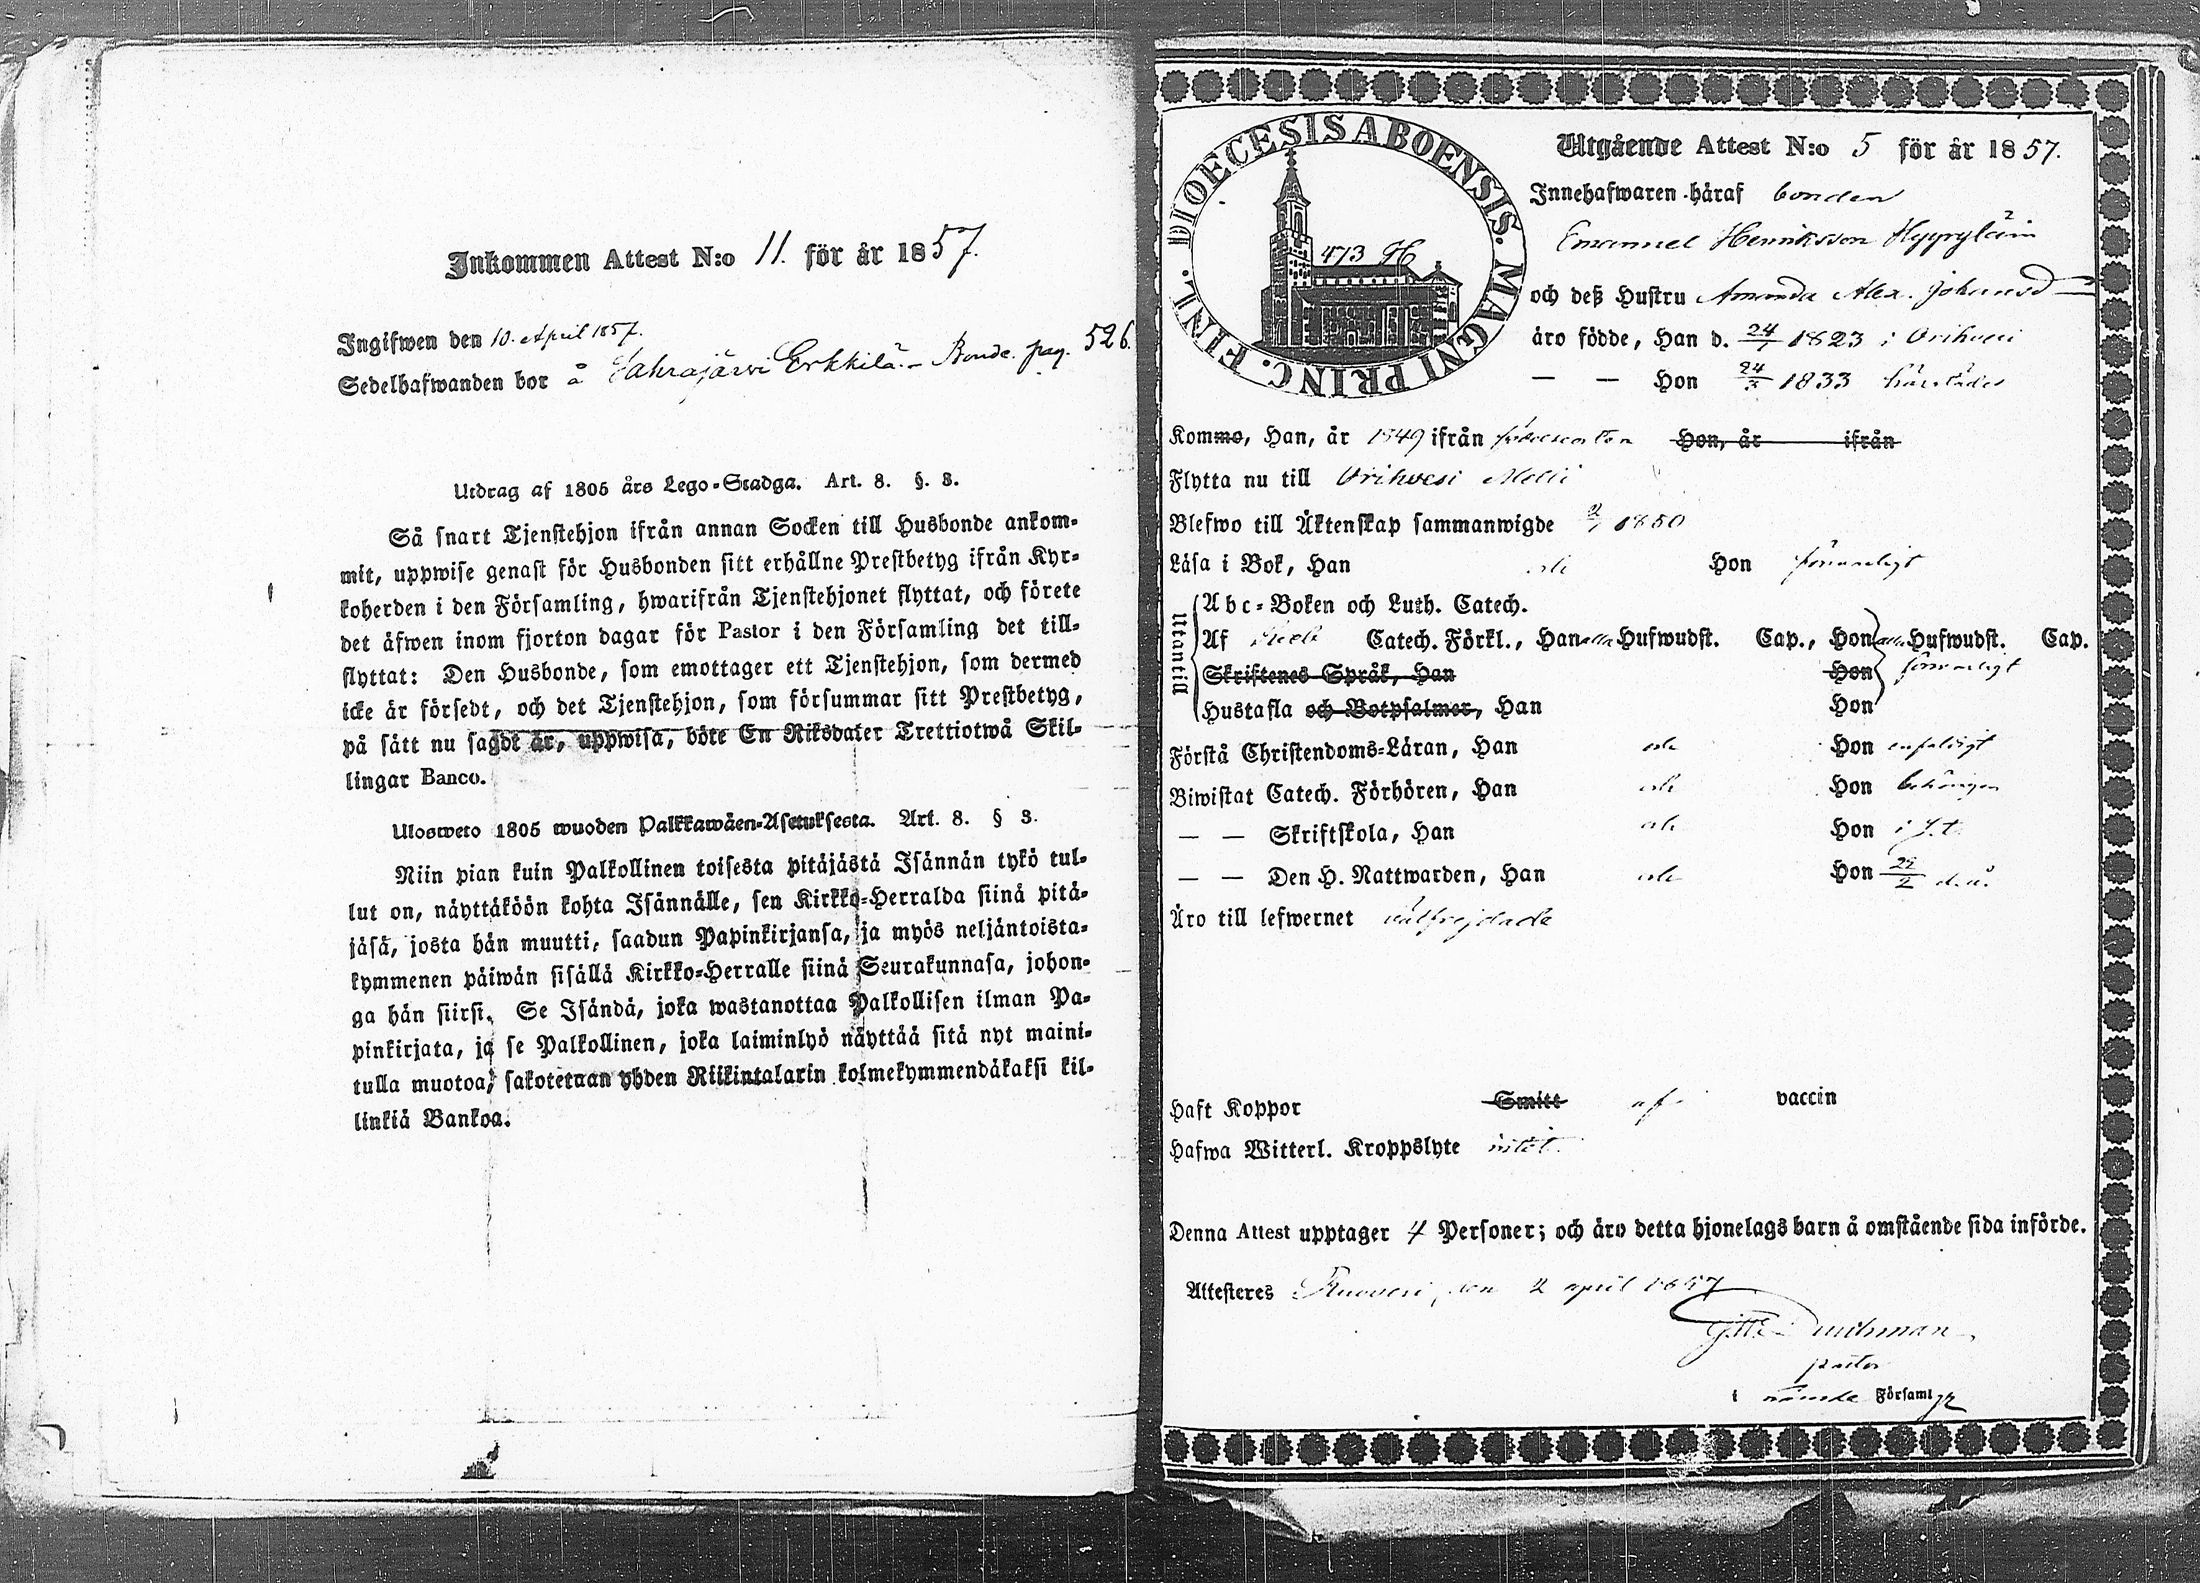 Inkommen Attest N:o 11. för år 1857.
Ingifwen den 10. April 1857.
Sedelhafwanden bor å Vahrajärvi Erkkilä - Bonde. pag. 526.
Utdrag af 1805 års Lego-Stadga. Art. 8. §. 3.
Så snart Tjenstehjon ifrån annan Socken till Husbonde ankom-
mit, uppwise genast för Husbonden sitt erhållne Prestbetyg ifrån Kyr-
koherden i den Församling, hwarifrån Tjenstehjonet flyttat, och förete
det äfwen inom fjorton dagar för Pastor i den Församling det till-
flyttat: Den Husbonde, som emottager ett Tjenstehjon, som dermed
icke är försedt, och det Tjenstehjon, som försummar sitt Prestbetyg,
på sätt nu sagdt är, uppwisa, böte En Riksdaler Trettiotwå Skil-
lingar Banco.
Ulosweto 1805 wuoden Palkkawäen-Asetuksesta. Art. 8. § 3.
Niin pian kuin Palkollinen toisesta pitäjästä Isännän tykö tul-
lut on, näyttäköön kohta Isännälle, sen Kirkko-Herralda siinä pitä-
jäsä, josta hän muutti, saadun Papinkirjansa, ja myös neljäntoista-
kymmenen päiwän sisällä Kirkko-Herralle siinä Seurakunnasa, johon-
ga hän siirsi. Se Isändä, joka wastanottaa Palkollisen ilman Pa-
pinkirjata, ja se Palkollinen, joka laiminlyö näyttää sitä nyt maini-
tulla muotoa, sakotetaan yhden Riikintalarin kolmekymmendäkaksi kil-
linkiä Bankoa.
DIOECESIS ABOENSIS. MAGNI PRINC. FINL.
473 H
Utgående Attest N:o 5 för år 1857.
Innehafwaren häraf bonden
Emanuel Henriksson Hyppyläin
och deß Hustru Amanda Alex. Johansd
äro födde, Han d. 24/1 1823 i Orihvesi
— — Hon 24/3 1833 härstädes
Kommo, Han, år 1849 ifrån Hon, år ifrån
Flytta nu till Orihvesi
Blefwo till Äktenskap sammanwigde 1850
Läsa i Bok, Han Hon försvarligt
Utanill
Abc-Boken och Luth. Catech.
Af Catech. Förkl., Han alla Hufwudst. Cap., Hon alla Hufwudst. Cap.
Skriftenes Språk, Han Hon försvarligt
Hustafla och Botpsalmer, Han Hon
Förstå Christendoms-Läran, Han och Hon enfaldigt
Biwistat Catech. Förhören, Han och Hon behörigen
— — Skriftskola, Han och Hon i s. t.
— — Den H. Nattwarden, Han och Hon 22/2 d. å.
Äro till lefwernet välfrejdade
Haft Koppor Smitt af vaccin
Hafwa Witterl. Kroppslyte intet
Denna Attest upptager 4 Personer; och äro detta hjonelags barn å omstående sida införde.
Attesteres Ruovesi, den 2 april 1857
pastor
i nämde Församl